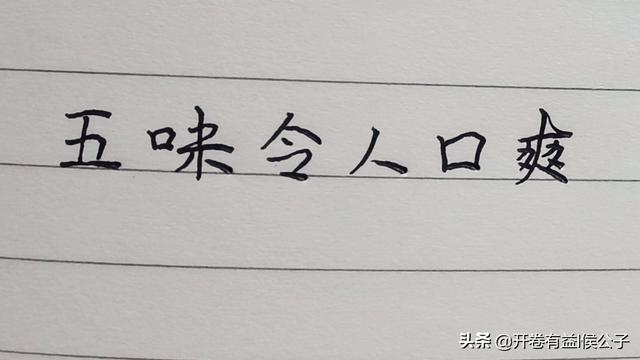 五味令人口爽
头条 @开卷有益|侯公子